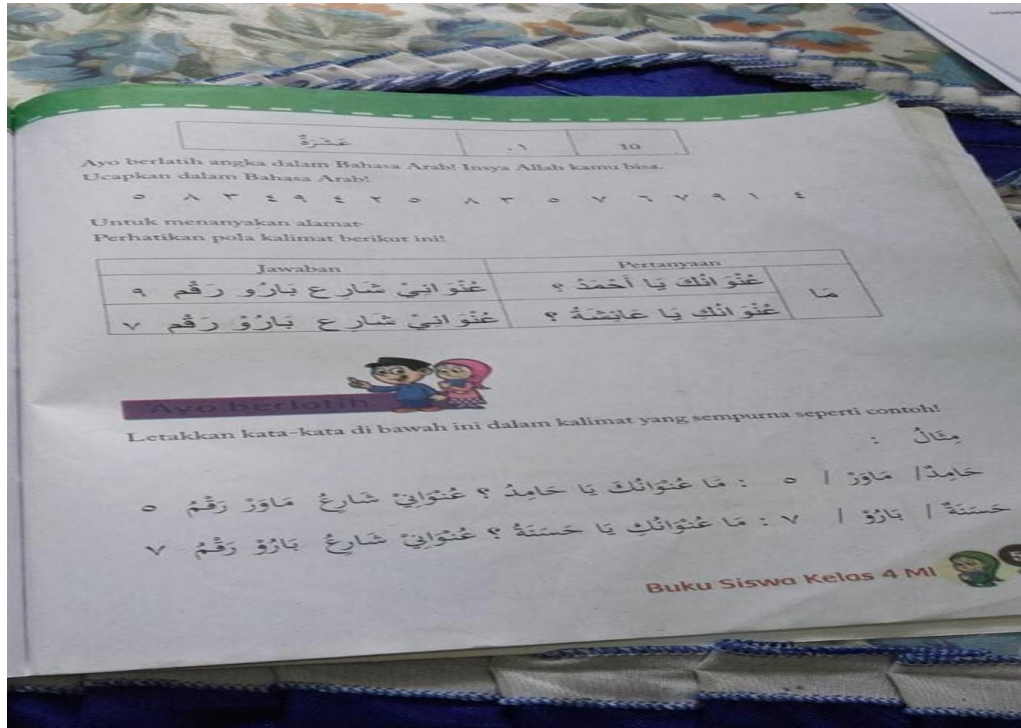 10 ١٠ عَشَرَةٌ
Ayo berlatih angka dalam Bahasa Arab! Insya Allah kamu bisa.
Ucapkan dalam Bahasa Arab!
٤ ١ ٩ ٧ ٦ ٧ ٥ ٣ ٨ ٥ ٢ ٤ ٩ ٤ ٣ ٨ ٥
Untuk menanyakan alamat
Perhatikan pola kalimat berikut ini!
Pertanyaan Jawaban
مَا عُنْوَانُكَ يَا أَحْمَدُ ؟ عُنْوَانِيْ شَارِع بَارُو رَقْم ٩
عُنْوَانُكِ يَا عَائِشَةُ ؟ عُنْوَانِيْ شَارِع بَارُوْ رَقْم ٧
Ayo berlatih
Letakkan kata-kata di bawah ini dalam kalimat yang sempurna seperti contoh!
مِثَالٌ :
حَامِدٌ/ مَاوَرْ / ٥ : مَا عُنْوَانُكَ يَا حَامِدُ ؟ عُنْوَانِيْ شَارِعُ مَاوَرْ رَقْمُ ٥
حَسَنَةٌ / بَارُوْ / ٧ : مَا عُنْوَانُكِ يَا حَسَنَةُ ؟ عُنْوَانِيْ شَارِعُ بَارُوْ رَقْمُ ٧
Buku Siswa Kelas 4 MI